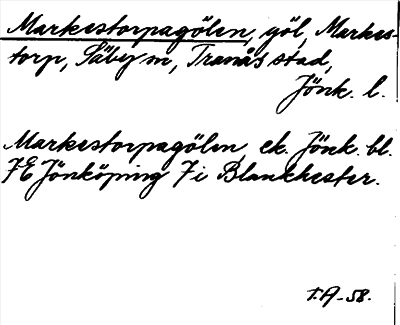 Markestorpagölen, göl, Markes-
torp, Säby sn, Tranås stad,
Jönk. l.
Markestorpagölen, ek. Jönk. bl.
7E Jönköping 7i Blankhester.
T.A-58.